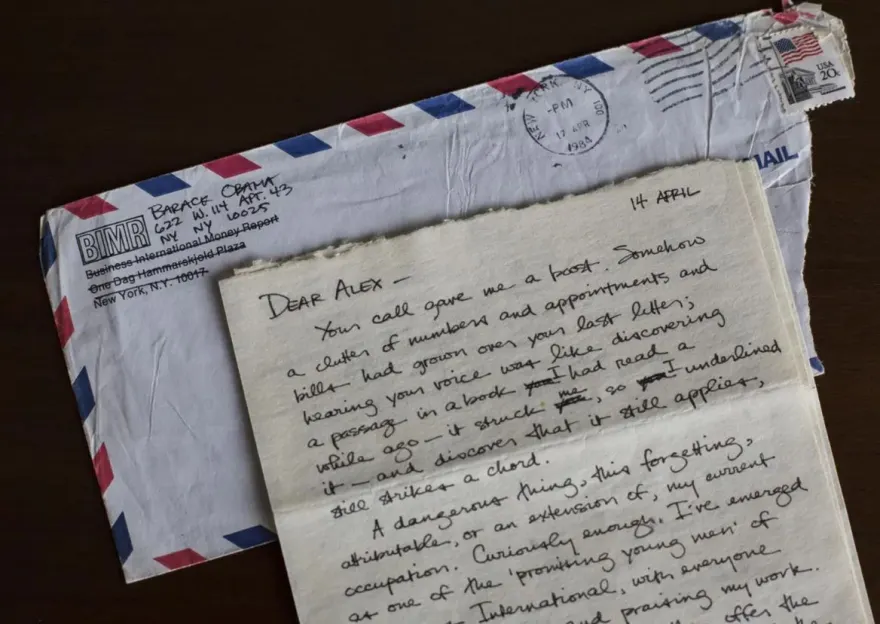 USA
20c
NEW YORK, NY 100
-PM
17 APR
1984
MAIL
BARACK OBAMA
622 W. 114 APT. 43
NY NY 10025
BIMR
Business International Money Report
One Dag Hammarskjold Plaza
New York, N.Y. 10017
14 APRIL
DEAR ALEX —
Your call gave me a boost. Somehow
a clutter of numbers and appointments and
bills had grown over your last letter;
hearing your voice was like discovering
a passage in a book I had read a
while ago — it struck me, so I underlined
it — and discover that it still applies,
still strikes a chord.
A dangerous thing, this forgetting,
attributable, or an extension of, my current
occupation. Curiously enough, I've emerged
as one of the 'promising young men' of
International, with everyone
and praising my work.
offer the